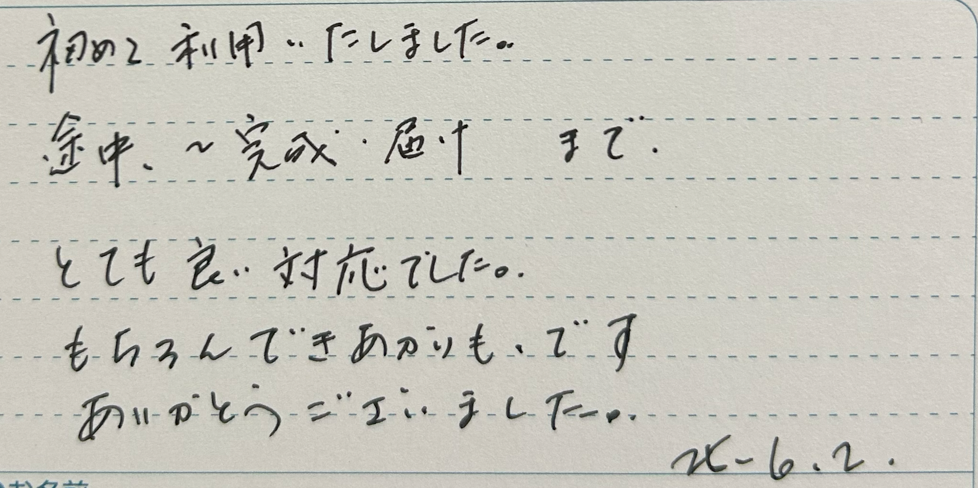 初めて利用いたしました。
途中、~完成・届け まで.
とても良い対応でした。
もちろんできあがりも、です
ありがとうございました。
6.2.
お名前